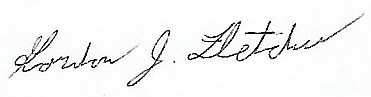 Gordon J. Fletcher